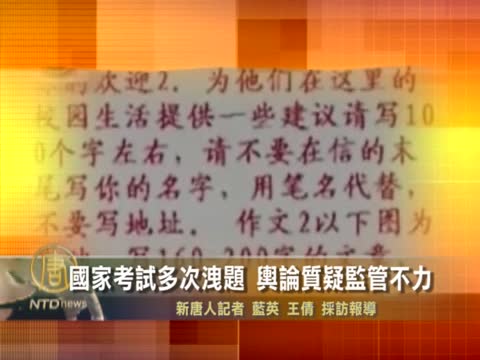 的欢迎2. 为他们在这里的
校园生活提供一些建议请写10
0个字左右, 请不要在信的末
尾写你的名字, 用笔名代替,
不要写地址. 作文2以下图为
写160-200字的文章
國家考試多次洩題 輿論質疑監管不力
新唐人記者 藍英 王倩 採訪報導
唐
NTDnews